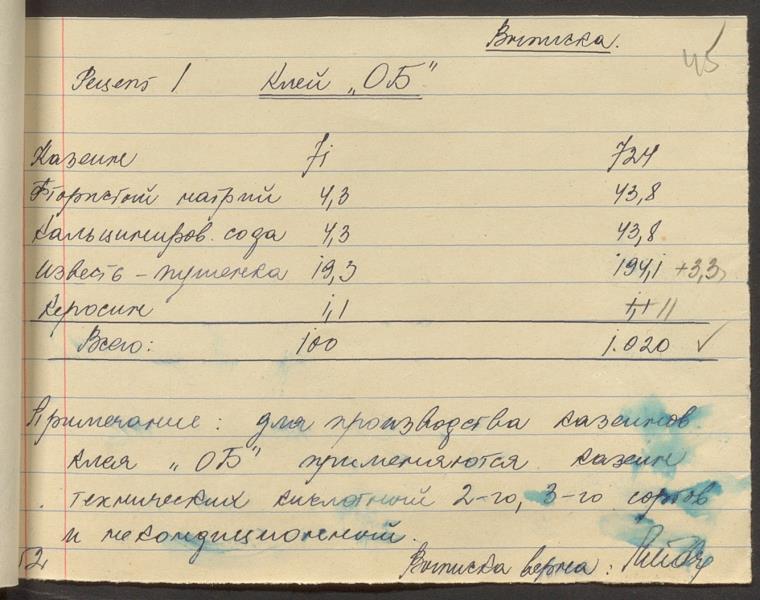 Выписка.
45
Рецепт 1 Клей „ОБ"
Казеин 71 724
Фтористый натрий 4,3 43,8
Кальциниров. сода 4,3 43,8
Известь-пушенка 19,3 194,1 +3,3
Керосин 1,1 1,1 11
Всего: 100 1.020 ✓
Примечание: для производства казеинов.
клея „ОБ" применяются казеин
технических кислотный 2-го, 3-го сортов
и некондиционный.
52
Выписка верна: